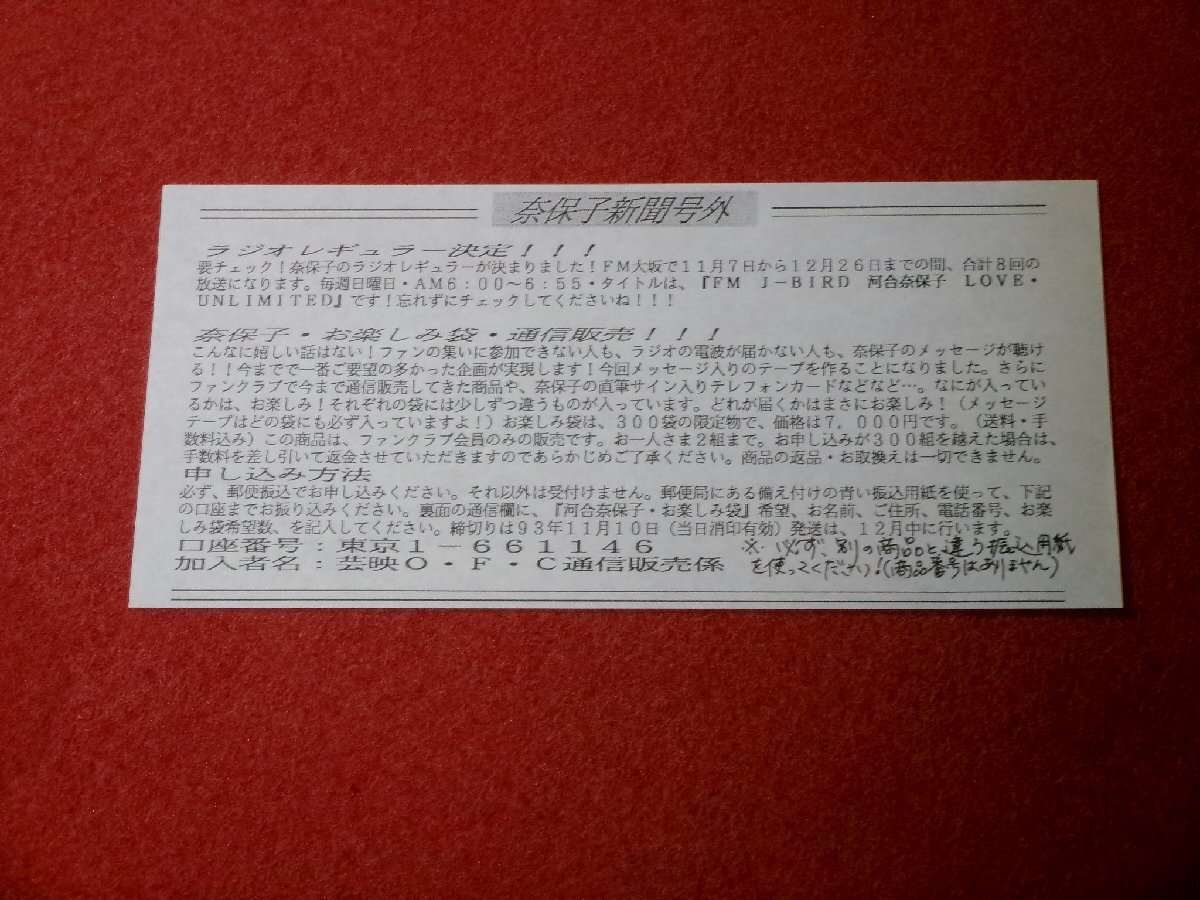 奈保子新聞号外
ラジオレギュラー決定！！！
要チェック！奈保子のラジオレギュラーが決まりました！FM大坂で１１月７日から１２月２６日までの間、合計８回の
放送になります。毎週日曜日・AM６：００～６：５５・タイトルは、『FM　J－BIRD　河合奈保子　LOVE・
UNLIMITED』です！忘れずにチェックしてくださいね！！！
奈保子・お楽しみ袋・通信販売！！！
こんなに嬉しい話はない！ファンの集いに参加できない人も、ラジオの電波が届かない人も、奈保子のメッセージが聴け
る！！今までで一番ご要望の多かった企画が実現します！今回メッセージ入りのテープを作ることになりました。さらに
ファンクラブで今まで通信販売してきた商品や、奈保子の直筆サイン入りテレフォンカードなどなど…。なにが入ってい
るかは、お楽しみ！それぞれの袋には少しずつ違うものが入っています。どれが届くかはまさにお楽しみ！（メッセージ
テープはどの袋にも必ず入っていますよ！）お楽しみ袋は、３００袋の限定物で、価格は７，０００円です。（送料・手
数料込み）この商品は、ファンクラブ会員のみの販売です。お一人さま２組まで。お申し込みが３００組を越えた場合は、
手数料を差し引いて返金させていただきますのであらかじめご了承ください。商品の返品・お取換えは一切できません。
申し込み方法
必ず、郵便振込でお申し込みください。それ以外は受付けません。郵便局にある備え付けの青い振込用紙を使って、下記
の口座までお振り込みください。裏面の通信欄に、『河合奈保子・お楽しみ袋』希望、お名前、ご住所、電話番号、お楽
しみ袋希望数、を記入してください。締切りは９３年１１月１０日（当日消印有効）発送は、１２月中に行います。
口座番号：東京１－６６１１４６
加入者名：芸映O・F・C通信販売係
※必ず、別の商品と違う振込用紙
を使ってください！（商品番号はありません）